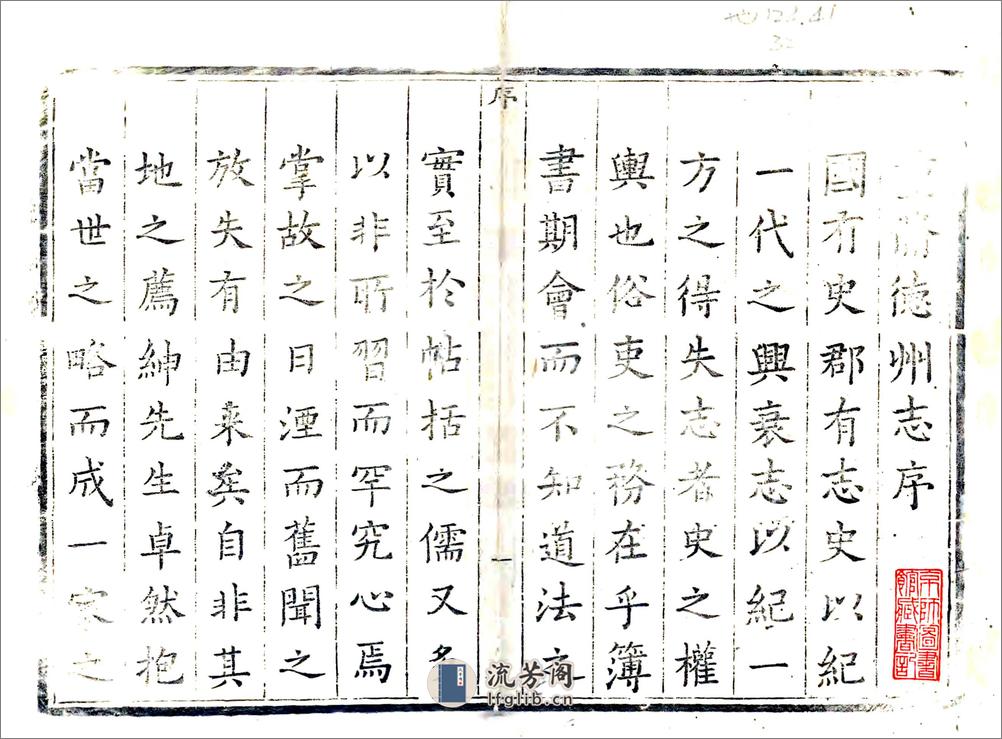 德州志序
國有史郡有志史以紀
一代之興衰志以紀一
方之得失志者史之權
輿也俗吏之務在乎簿
書期會而不知道法之
序
一
實至於帖括之儒又多
以非所習而罕究心焉
掌故之日湮而舊聞之
放失有由来矣自非其
地之薦紳先生卓然抱
當世之略而成一家之
京師圖書
館藏書記
流芳阁
lfglib.cn